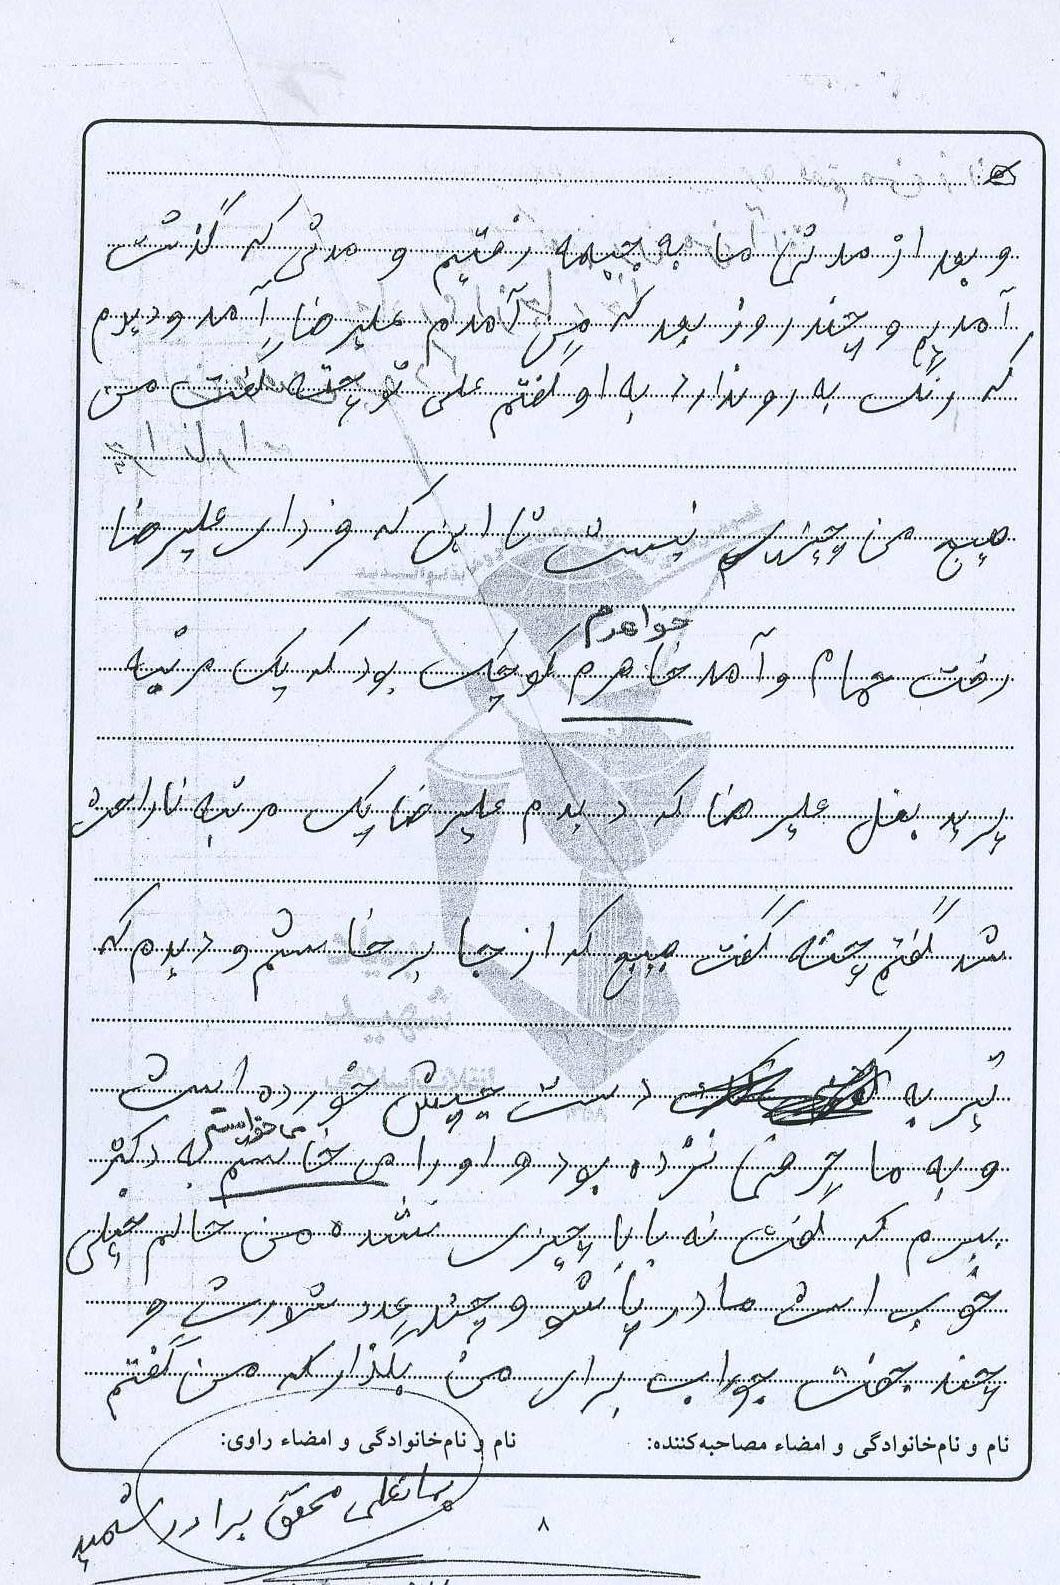 و بعد از مدتی ما به جبهه رفتیم و مدتی که گذشت
آمدیم و چند روز بعد که من آمدم علیرضا آمد و دیدم
که رنگ به رو ندارد به او گفتم علی تو چته گفت من
هیچ من چیزیم نیست تا این که فردای علیرضا
خواهرم
رفت حمام و آمد خاهرم کوچک بود که یک مرتبه
پرید بغل علیرضا که دیدم علیرضا یک مرتبه ناراحت
شد گفتم چته گفت هیچ که از جا برخاستم و دیدم که
تیر به دست چپش خورده است
می خواستم
و به ما حرفی نزده بود و او را می خاستم به دکتر
ببرم که گفت نه بابا چیزی نشده من حالم خیلی
خوب است مادر پاشو و چند عدد شورت و
چند جفت جوراب برای من بگذار که من گفتم
نام و نام‌خانوادگی و امضاء مصاحبه‌کننده:
نام و نام‌خانوادگی و امضاء راوی:
محقق برادر شهید
۸